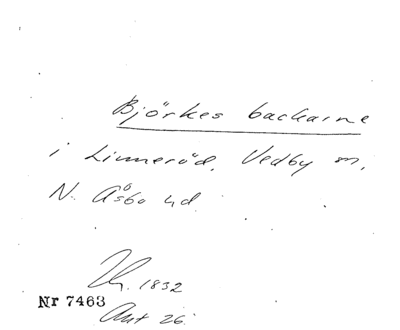 Björkes backarne
i Linneröd, Vedby m,
N. Åsbo hd
1832
Nr 7463
Akt 26.